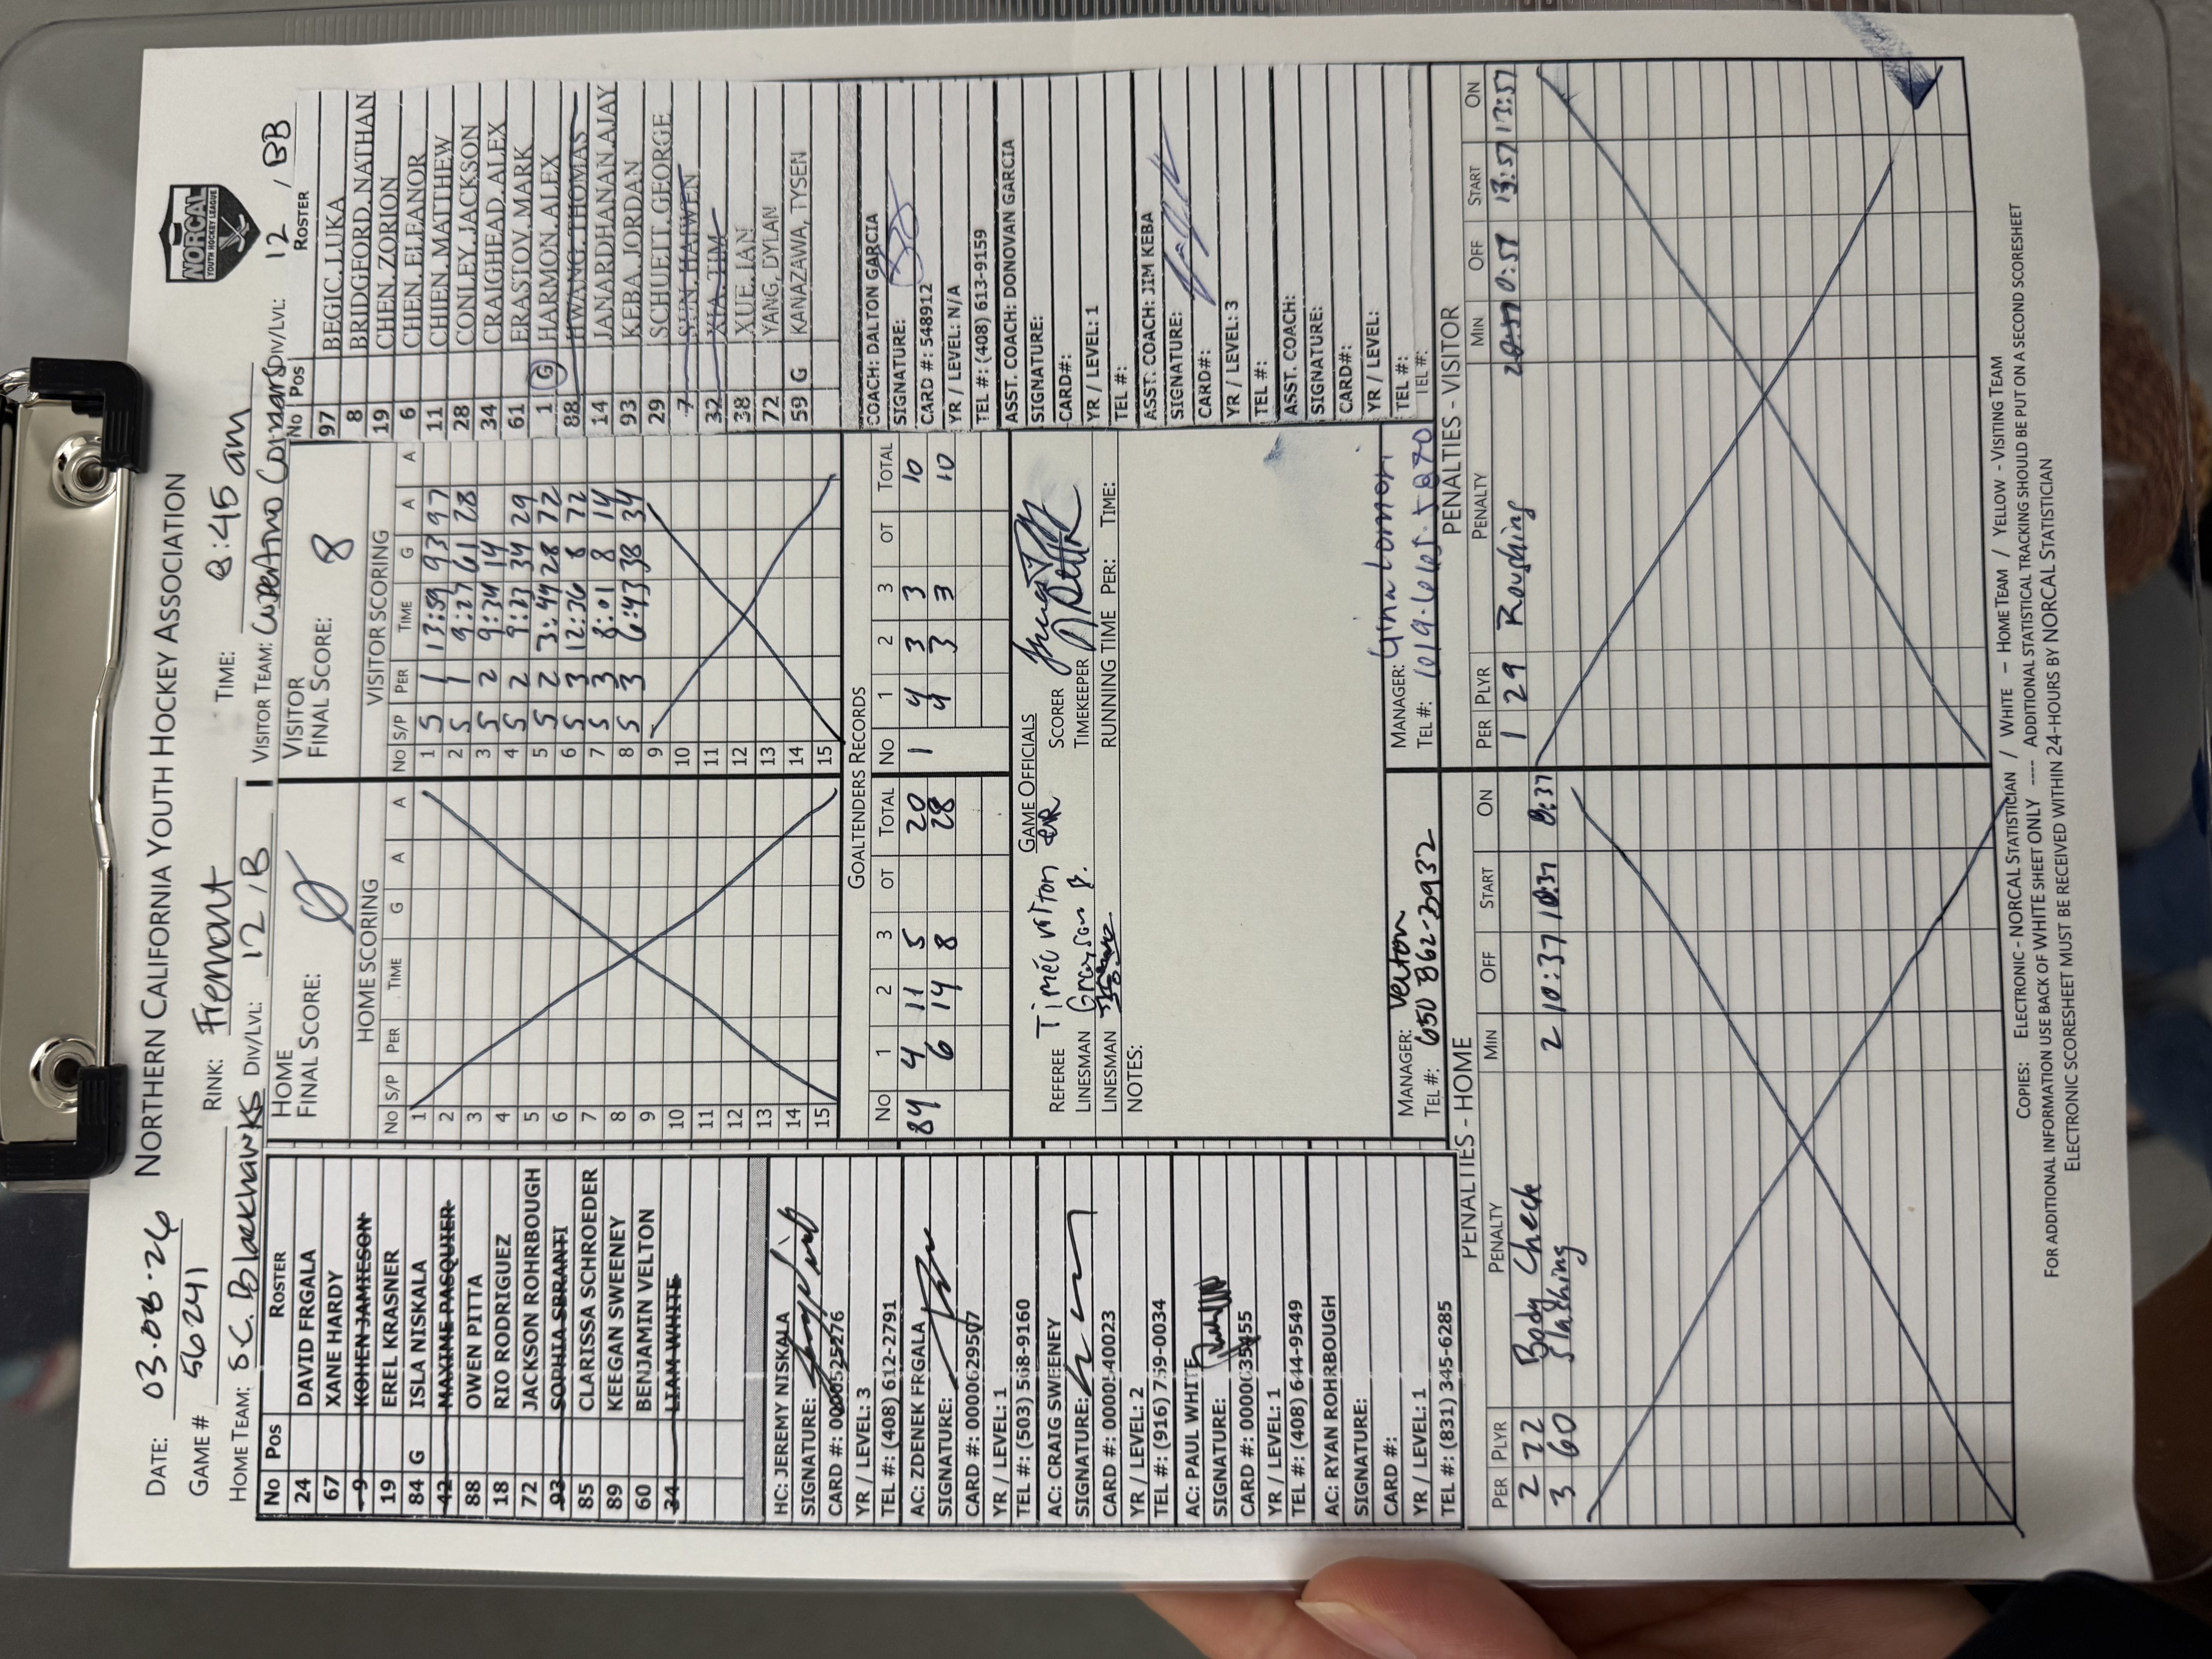 NORTHERN CALIFORNIA YOUTH HOCKEY ASSOCIATION
NORCAL
YOUTH HOCKEY LEAGUE
DATE: 03.08.26 RINK: Fremont TIME: 8:45 am
GAME # 56241
HOME TEAM: S.C. Blackhawks DIV/LVL: 12 / B VISITOR TEAM: Cupertino DIV/LVL: 12 / BB
No Pos ROSTER
24 DAVID FRGALA
67 XANE HARDY
9 KOHEN JAMIESON
19 EREL KRASNER
84 G ISLA NISKALA
42 MAXIME PASQUIER
88 OWEN PITTA
18 RIO RODRIGUEZ
72 JACKSON ROHRBOUGH
93 SOPHIA SBRANTI
85 CLARISSA SCHROEDER
89 KEEGAN SWEENEY
60 BENJAMIN VELTON
34 LIAM WHITE
HC: JEREMY NISKALA
SIGNATURE:
CARD #: 0000525276
YR / LEVEL: 3
TEL #: (408) 612-2791
AC: ZDENEK FRGALA
SIGNATURE:
CARD #: 0000629507
YR / LEVEL: 1
TEL #: (503) 568-9160
AC: CRAIG SWEENEY
SIGNATURE:
CARD #: 0000540023
YR / LEVEL: 2
TEL #: (916) 759-0034
AC: PAUL WHITE
SIGNATURE:
CARD #: 0000635455
YR / LEVEL: 1
TEL #: (408) 644-9549
AC: RYAN ROHRBOUGH
SIGNATURE:
CARD #:
YR / LEVEL: 1
TEL #: (831) 345-6285
HOME
FINAL SCORE: 0
HOME SCORING
No S/P PER TIME G A A
1
2
3
4
5
6
7
8
9
10
11
12
13
14
15
VISITOR
FINAL SCORE: 8
VISITOR SCORING
No S/P PER TIME G A A
1 5 1 13:59 93 97
2 5 1 9:27 61 28
3 5 2 9:34 14
4 5 2 9:23 34 29
5 5 2 3:44 28 72
6 5 3 12:36 8 72
7 5 3 8:01 8 14
8 5 3 6:43 38 34
9
10
11
12
13
14
15
GOALTENDERS RECORDS
No 1 2 3 OT TOTAL No 1 2 3 OT TOTAL
84 4 11 5 20 1 4 3 3 10
6 14 8 28 4 3 3 10
GAME OFFICIALS
REFEREE SCORER
LINESMAN TIMEKEEPER
LINESMAN RUNNING TIME PER: TIME:
NOTES:
MANAGER: Velton MANAGER: Gina Lomori
TEL #: 650 862-3932 TEL #: 619.665.5270
No Pos ROSTER
97 BEGIC, LUKA
8 BRIDGFORD, NATHAN
19 CHEN, ZORION
6 CHEN, ELEANOR
11 CHEN, MATTHEW
28 CONLEY, JACKSON
34 CRAIGHEAD, ALEX
61 ERASTOV, MARK
1 G HARMON, ALEX
88 HWANG, THOMAS
14 JANARDHANAN, AJAY
93 KEBA, JORDAN
29 SCHUETT, GEORGE
7 SUN, HAIWEN
32 XIA, TIM
38 XUE, IAN
72 YANG, DYLAN
59 G KANAZAWA, TYSEN
COACH: DALTON GARCIA
SIGNATURE:
CARD #: 548912
YR / LEVEL: N/A
TEL #: (408) 613-9159
ASST. COACH: DONOVAN GARCIA
SIGNATURE:
CARD#:
YR / LEVEL: 1
TEL #:
ASST. COACH: JIM KEBA
SIGNATURE:
CARD#:
YR / LEVEL: 3
TEL #:
ASST. COACH:
SIGNATURE:
CARD#:
YR / LEVEL:
TEL #:
TEL #:
PENALTIES - HOME
PER PLYR PENALTY MIN OFF START ON
2 72 Body Check 2 10:37 10:37 8:37
3 60 Slashing
PENALTIES - VISITOR
PER PLYR PENALTY MIN OFF START ON
1 29 Roughing 0:57 13:57 13:57
COPIES: ELECTRONIC - NORCAL STATISTICIAN / WHITE - HOME TEAM / YELLOW - VISITING TEAM
FOR ADDITIONAL INFORMATION USE BACK OF WHITE SHEET ONLY ---- ADDITIONAL STATISTICAL TRACKING SHOULD BE PUT ON A SECOND SCORESHEET
ELECTRONIC SCORESHEET MUST BE RECEIVED WITHIN 24-HOURS BY NORCAL STATISTICIAN